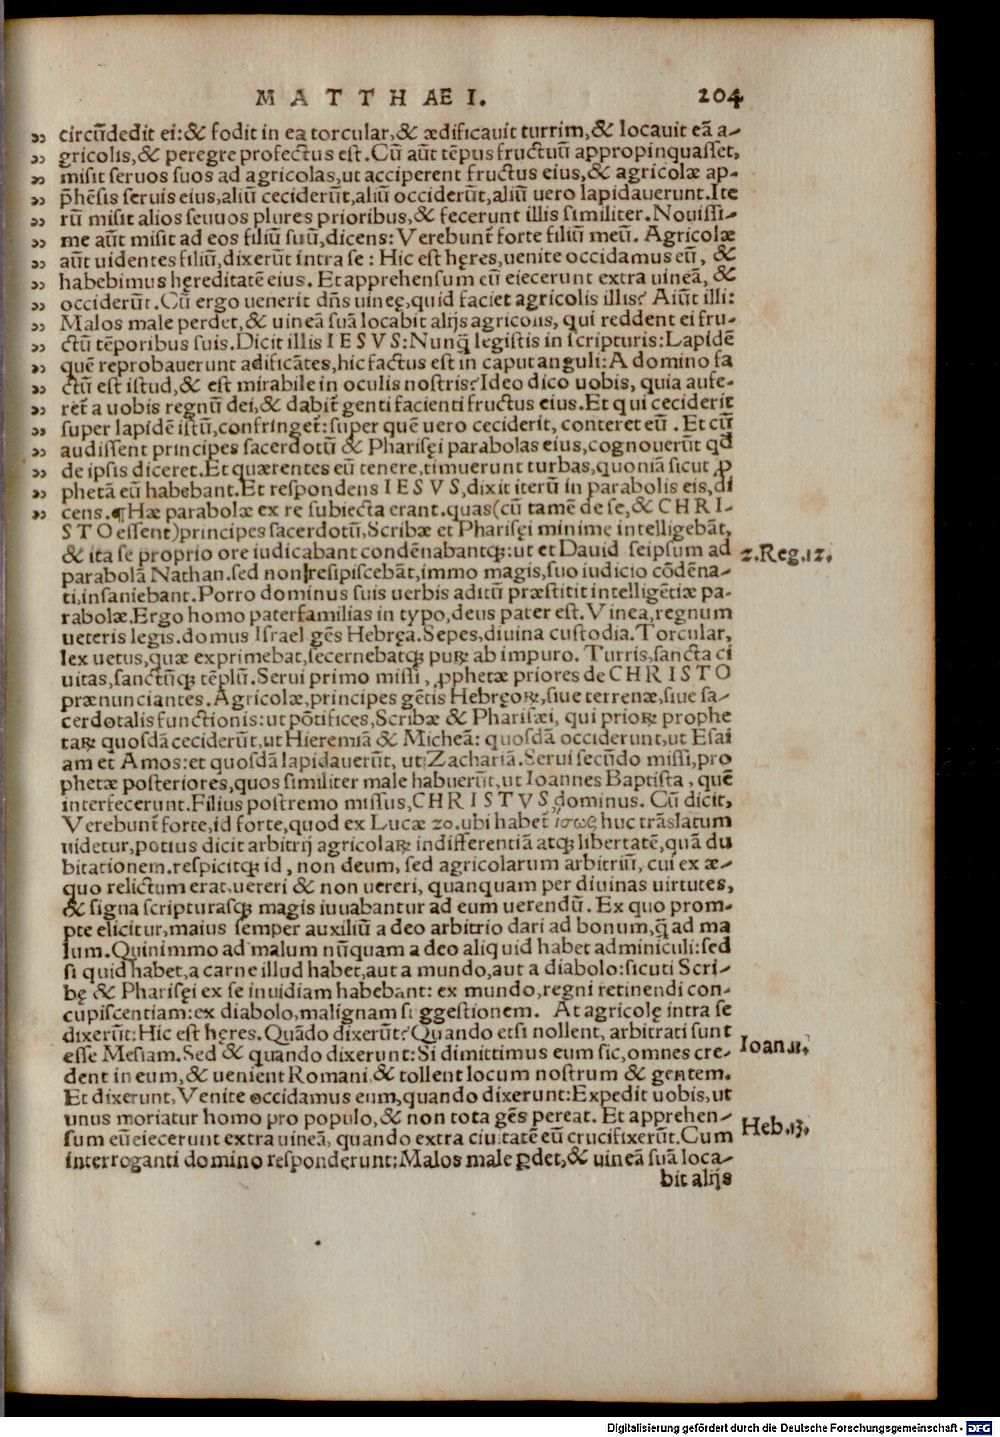 MATTHAEI. 204
circũdedit ei:& fodit in ea torcular,& ædificauit turrim,& locauit eã a-
gricolis,& peregre profectus est.Cũ aũt tẽpus fructuũ appropinquasset,
misit seruos suos ad agricolas,ut acciperent fructus eius,& agricolæ ap-
p̃hẽsis seruis eius,aliũ ceciderũt,aliũ occiderũt,aliũ uero lapidauerunt.Ite
rũ misit alios seuuos plures prioribus,& fecerunt illis similiter.Nouissi-
me aũt misit ad eos filiũ suũ,dicens:Verebunt̃ forte filiũ meũ. Agricolæ
aũt uidentes filiũ,dixerũt intra se: Hic est hęres,uenite occidamus eũ, &
habebimus hęreditatẽ eius. Et apprehensum eũ eiecerunt extra uineã, &
occiderũt.Cũ ergo uenerit dñs uineę,quid faciet agricolis illis? Aiũt illi:
Malos male perdet,& uineã suã locabit alijs agricolis, qui reddent ei fru-
ctũ tẽporibus suis.Dicit illis IESVS:Nunq̃ legistis in scripturis:Lapidẽ
quẽ reprobauerunt ædificãtes,hic factus est in caput anguli:A domino fa
ctũ est istud,& est mirabile in oculis nostris?Ideo dico uobis, quia aufe-
ret̃ a uobis regnũ dei,& dabit̃ genti facienti fructus eius.Et qui ceciderit
super lapidẽ istũ,confringet̃:super quẽ uero ceciderit, conteret eũ. Et cũ
audissent principes sacerdotũ & Pharisęi parabolas eius,cognouerũt qđ
de ipsis diceret.Et quærentes eũ tenere,timuerunt turbas,quoniã sicut ꝓ
phetã eũ habebant.Et respondens IESVS,dixit iterũ in parabolis eis,di
cens.¶Hæ parabolæ ex re subiecta erant.quas(cũ tamẽ de se,& CHRI-
STO essent)principes sacerdotũ,Scribæ et Pharisęi minime intelligebãt,
& ita se proprio ore iudicabant condẽnabantqꝫ:ut et Dauid seipsum ad 2.Reg.12.
parabolã Nathan.sed non resipiscebãt,immo magis,suo iudicio cõdẽna-
ti,insaniebant.Porro dominus suis uerbis aditũ præstitit intelligẽtiæ pa-
rabolæ.Ergo homo paterfamilias in typo,deus pater est.Vinea,regnum
ueteris legis.domus Israel gẽs Hebręa.Sepes,diuina custodia.Torcular,
lex uetus,quæ exprimebat,secernebatqꝫ puꝝ ab impuro. Turris,sancta ci
uitas,sanctũqꝫ tẽplũ.Serui primo missi, ꝓphetæ priores de CHRISTO
prænunciantes.Agricolæ,principes gẽtis Hebręoꝝ,siue terrenæ,siue sa-
cerdotalis functionis:ut põtifices,Scribæ & Pharisæi, qui prioꝝ prophe
taꝝ quosdã ceciderũt,ut Hieremiã & Micheã: quosdã occiderunt,ut Esai
am et Amos:et quosdã lapidauerũt, ut Zachariã.Serui secũdo missi,pro
phetæ posteriores,quos similiter male habuerũt,ut Ioannes Baptista, quẽ
interfecerunt.Filius postremo missus,CHRISTVS,dominus. Cũ dicit,
Verebunt̃ forte,id forte,quod ex Lucæ 20.ubi habet̃ ἴσως huc trãslatum
uidetur,potius dicit arbitrij agricolaꝝ indifferentiã atqꝫ libertatẽ,quã du
bitationem.respicitqꝫ id, non deum, sed agricolarum arbitriũ, cui ex æ-
quo relictum erat,uereri & non uereri, quanquam per diuinas uirtutes,
& signa scripturasqꝫ magis iuuabantur ad eum uerendũ. Ex quo prom-
pte elicitur,maius semper auxiliũ a deo arbitrio dari ad bonum,q̃ ad ma
lum.Quinimmo ad malum nũquam a deo aliquid habet adminiculi:sed
si quid habet,a carne illud habet,aut a mundo,aut a diabolo:sicuti Scri-
bę & Pharisęi ex se inuidiam habebant: ex mundo,regni retinendi con-
cupiscentiam:ex diabolo,malignam suggestionem. At agricolę intra se
dixerũt:Hic est hęres.Quãdo dixerũt?Quando etsi nollent, arbitrati sunt
esse Mesiam.Sed & quando dixerunt:Si dimittimus eum sic,omnes cre- Ioan.11.
dent in eum,& uenient Romani,& tollent locum nostrum & gentem.
Et dixerunt,Venite occidamus eum,quando dixerunt:Expedit uobis,ut
unus moriatur homo pro populo,& non tota gẽs pereat. Et apprehen- Heb.13.
sum eũ eiecerunt extra uineã, quando extra ciuitatẽ eũ crucifixerũt.Cum
interroganti domino responderunt:Malos male ꝑdet,& uineã suã loca-
bit alijs
Digitalisierung gefördert durch die Deutsche Forschungsgemeinschaft - DFG